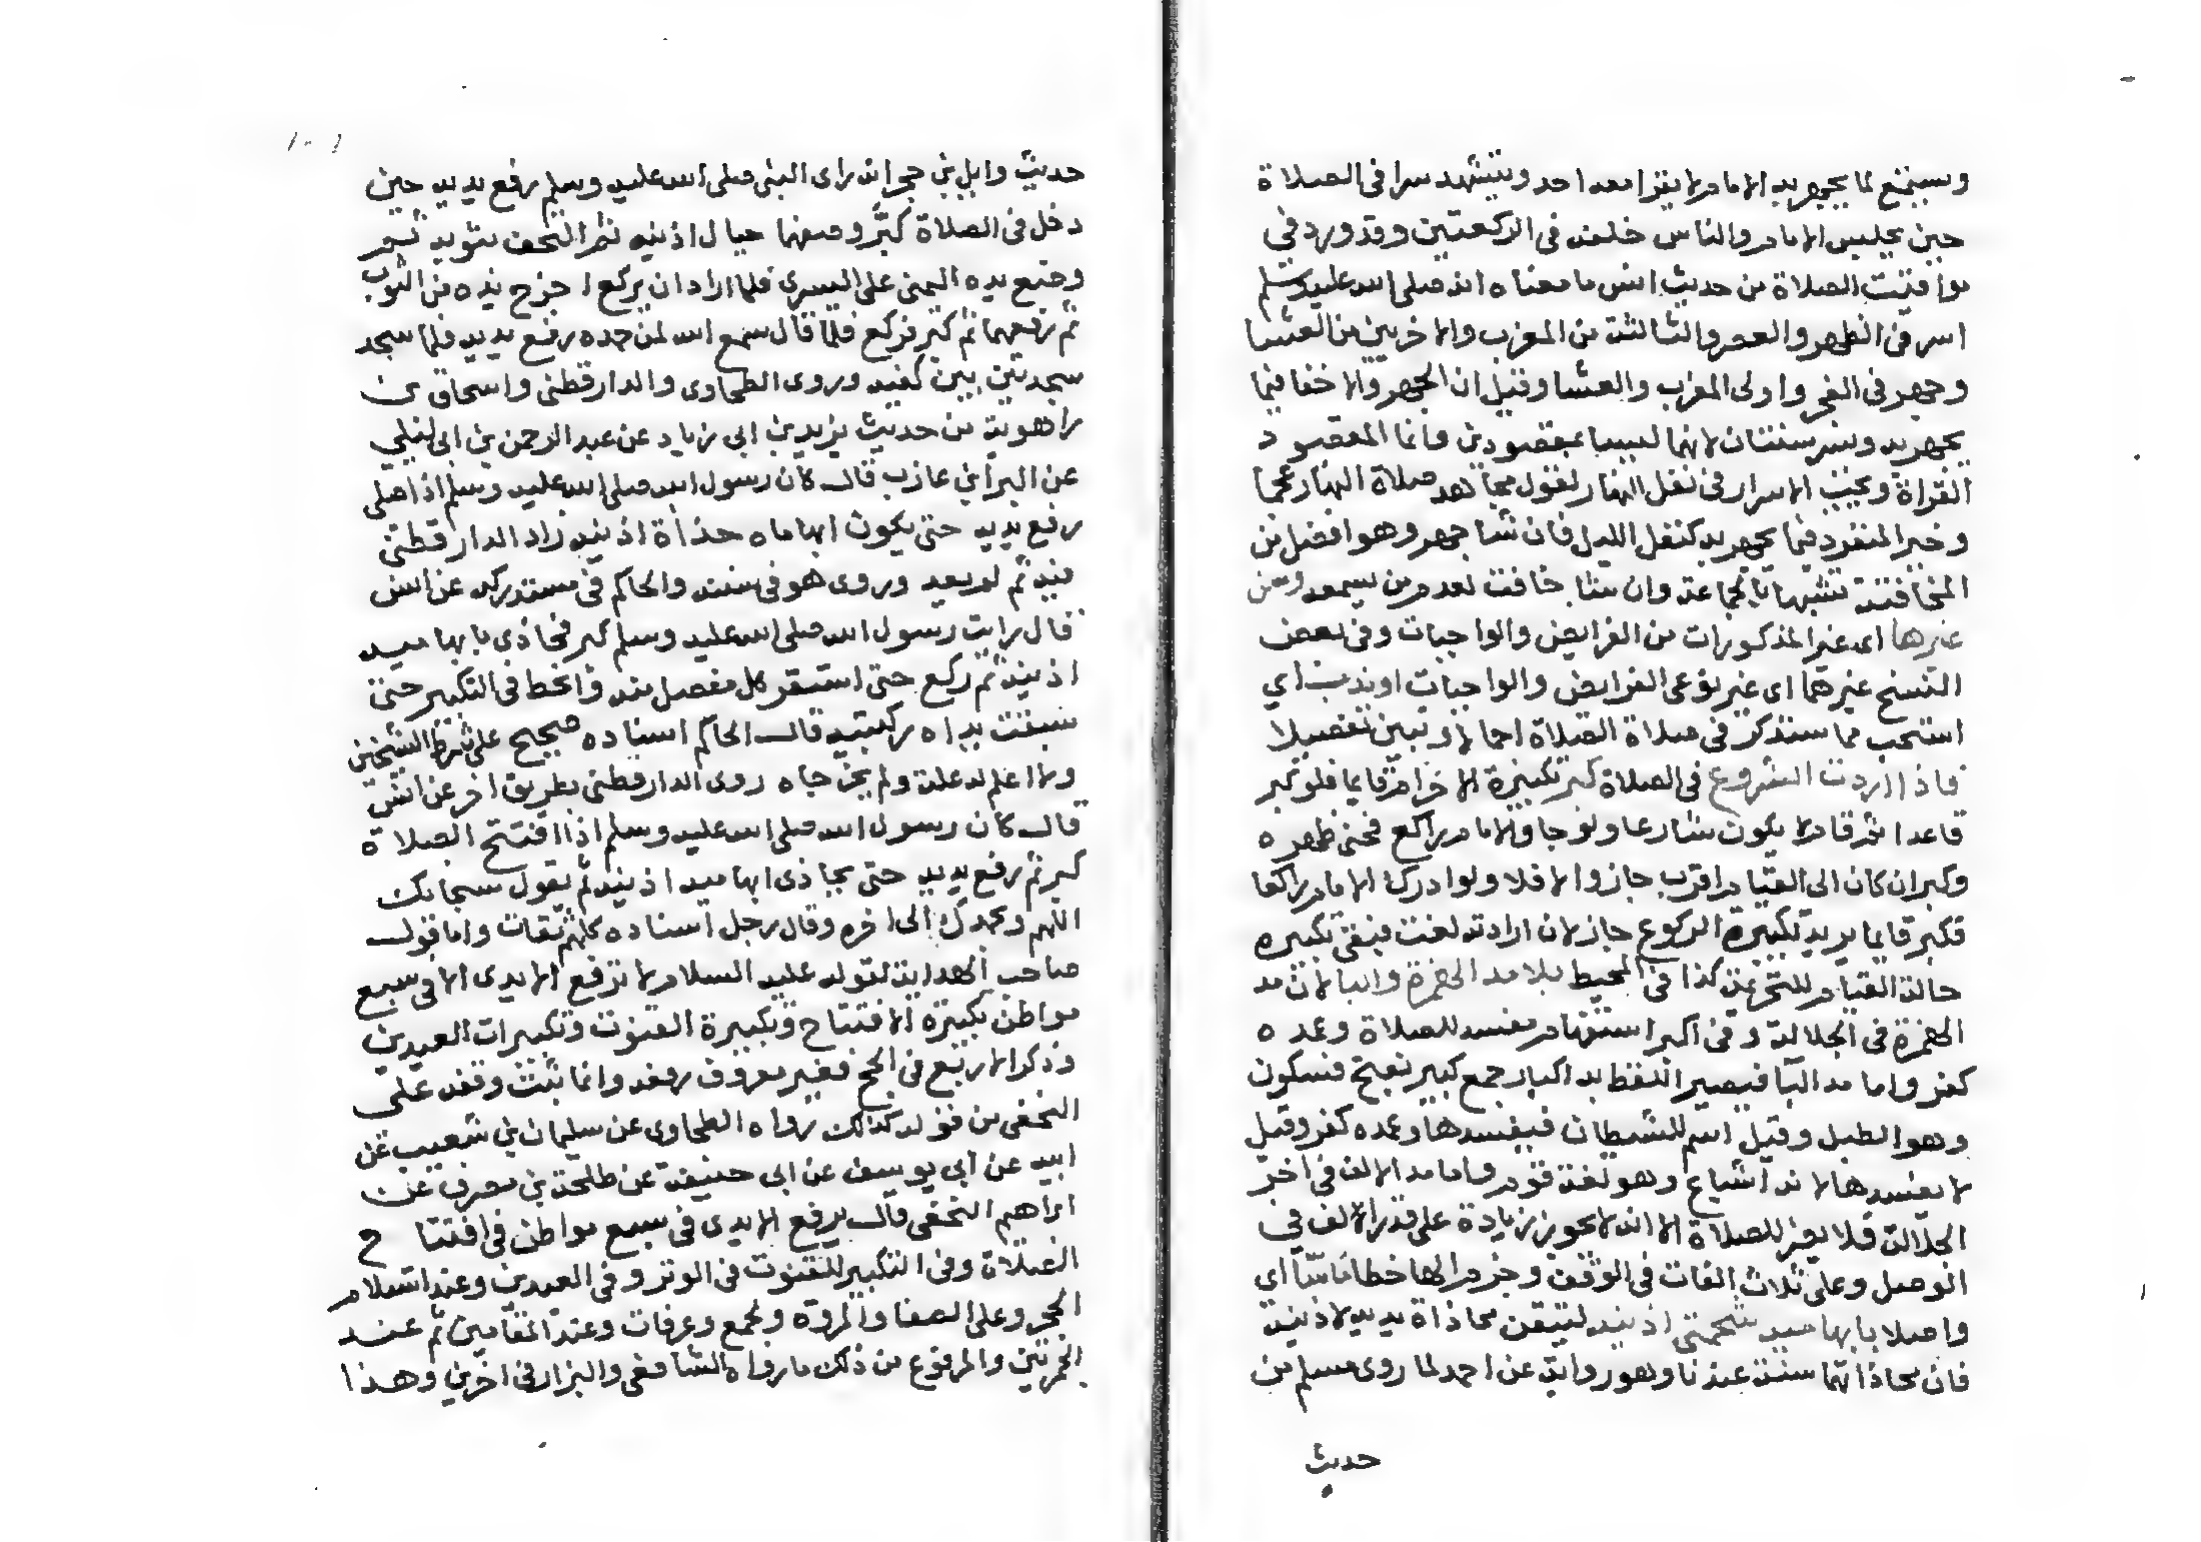 ويستمع لما يجهر به الامام لا يقرا معه احد ويتشهد سرا في الصلاة
حين يجلس الامام والناس خلفه في الركعتين وقد ورد في
مواقيت الصلاة من حديث انس ما معناه انه صلى الله عليه وسلم
اسر في الظهر والعصر والثالثة من المغرب والاخريين من العشا
وجهر في الفجر واولى المغرب والعشا وقيل ان الجهر والاخفا فيما
يجهر به ويسر سنتان لانهما ليسا بمقصودين وانما المقصود
القراة ويجب الاسرار في نفل النهار لقول مجاهد صلاة النهار عجما
وخير المنفرد فيما يجهر به كنفل الليل فان شا جهر وهو افضل من
المخافتة تشبها بالجماعة وان شا خافت لعدم من يسمعه وسن
غيرها اى غير المذكورات من الفرايض والواجبات وفي بعض
النسخ غيرهما اى غير نوعى الفرايض والواجبات او ندب اي
استحب مما ستذكر في صلاة الصلاة اجمالا وتبين تفصيلا
فاذا اردت الشروع في الصلاة كبر تكبيرة الاحرام قايما فلو كبر
قاعدا ثم قام لا يكون شارعا ولو جا والامام راكع فحنى ظهره
وكبر ان كان الى القيام اقرب جاز والا فلا ولو ادرك الامام راكعا
فكبر قايما يريد تكبيرة الركوع جاز لان ارادته لغت فبقى تكبيره
حالة القيام للتحريمة كذا في المحيط بلا مد الهمزة والبا لان مد
الهمزة في الجلالة وفي اكبر استفهام مفسد للصلاة وعمده
كفر واما مد البا فيصير اللفظ به اكبار جمع كبير بفتح فسكون
وهو الطبل وقيل اسم للشيطان فيفسدها وعمده كفر وقيل
لا يفسدها لانه اشباع وهو لغة قوم واما مد الالف في اخر
الجلالة فلا يضر للصلاة الا انه لا يجوز زيادة على قدر الالف في
الوصل وعلى ثلاث الفات في الوقف وجزم الها خطا ماسا اى
واصلا بابهاميه شحمتى اذنيه لتيقن محاذاة يديه لاذنيه
فان محاذاتهما سنة عندنا وهو رواية عن احمد لما روى مسلم من
حديث
١٠١
حديث وايل بن حجر انه راى النبي صلى الله عليه وسلم رفع يديه حين
دخل في الصلاة كبر وصفهما حيال اذنيه ثم التحف بثوبه ثم
وضع يده اليمنى على اليسرى فلما اراد ان يركع اخرج يده من الثوب
ثم رفعهما ثم كبر فركع فلما قال سمع الله لمن حمده رفع يديه فلما سجد
سجد بين كفيه وروى الطحاوى والدارقطنى واسحاق بن
راهوية من حديث يزيد بن ابى زياد عن عبد الرحمن بن ابى ليلى
عن البرا بن عازب قال كان رسول الله صلى الله عليه وسلم اذا صلى
رفع يديه حتى يكون ابهاماه حذاة اذنيه زاد الدارقطنى
فيه ثم لم يعد وروى هو في سننه والحاكم في مستدركه عن انس
قال رايت رسول الله صلى الله عليه وسلم كبر فحاذى بابهاميه
اذنيه ثم ركع حتى استقر كل مفصل منه وانحط في التكبير حتى
سبقت يداه ركبتيه قال الحاكم اسناده صحيح على شرط الشيخين
ولا اعلم له علة ولم يخرجاه روى الدارقطنى بطريق اخر عن انس
قال كان رسول الله صلى الله عليه وسلم اذا افتتح الصلاة
كبر ثم رفع يديه حتى يحاذى ابهاميه اذنيه ثم يقول سبحانك
اللهم وبحمدك الى اخره وقال رجل اسناده كلهم ثقات واما قول
صاحب الهداية لقوله عليه السلام لا ترفع الايدى الا فى سبع
مواطن تكبيرة الافتتاح وتكبيرة القنوت وتكبيرات العيدين
وذكر الاربع في الحج فغير معروف رفعه وانما ثبت وقفه على
النخعى من قوله كذلك رواه الطحاوى عن سليمان بن شعيب عن
ابيه عن ابى يوسف عن ابى حنيفة عن طلحة بن مصرف عن
ابراهيم النخعى قال يرفع الايدى فى سبع مواطن فى افتتاح
الصلاة وفى التكبير للقنوت فى الوتر وفى العيدين وعند استلام
الحجر وعلى الصفا والمروة وبجمع وعرفات وعند المقامين ثم عند
الجمرتين والمرفوع من ذلك ما رواه الشافعى والبزار فى اخرين وهذا